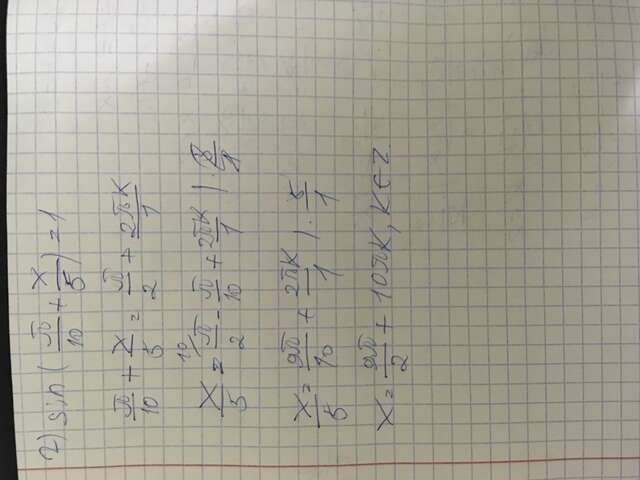 2) sin(π/10 + x/5) = 1
π/10 + x/5 = π/2 + 2πk/1
x/5 = 10/π/2 - π/10 + 2πk/1 | · 5/1
x/5 = 9π/10 + 2πk/1 | · 5/1
x = 9π/2 + 10πk, k ∈ Z.